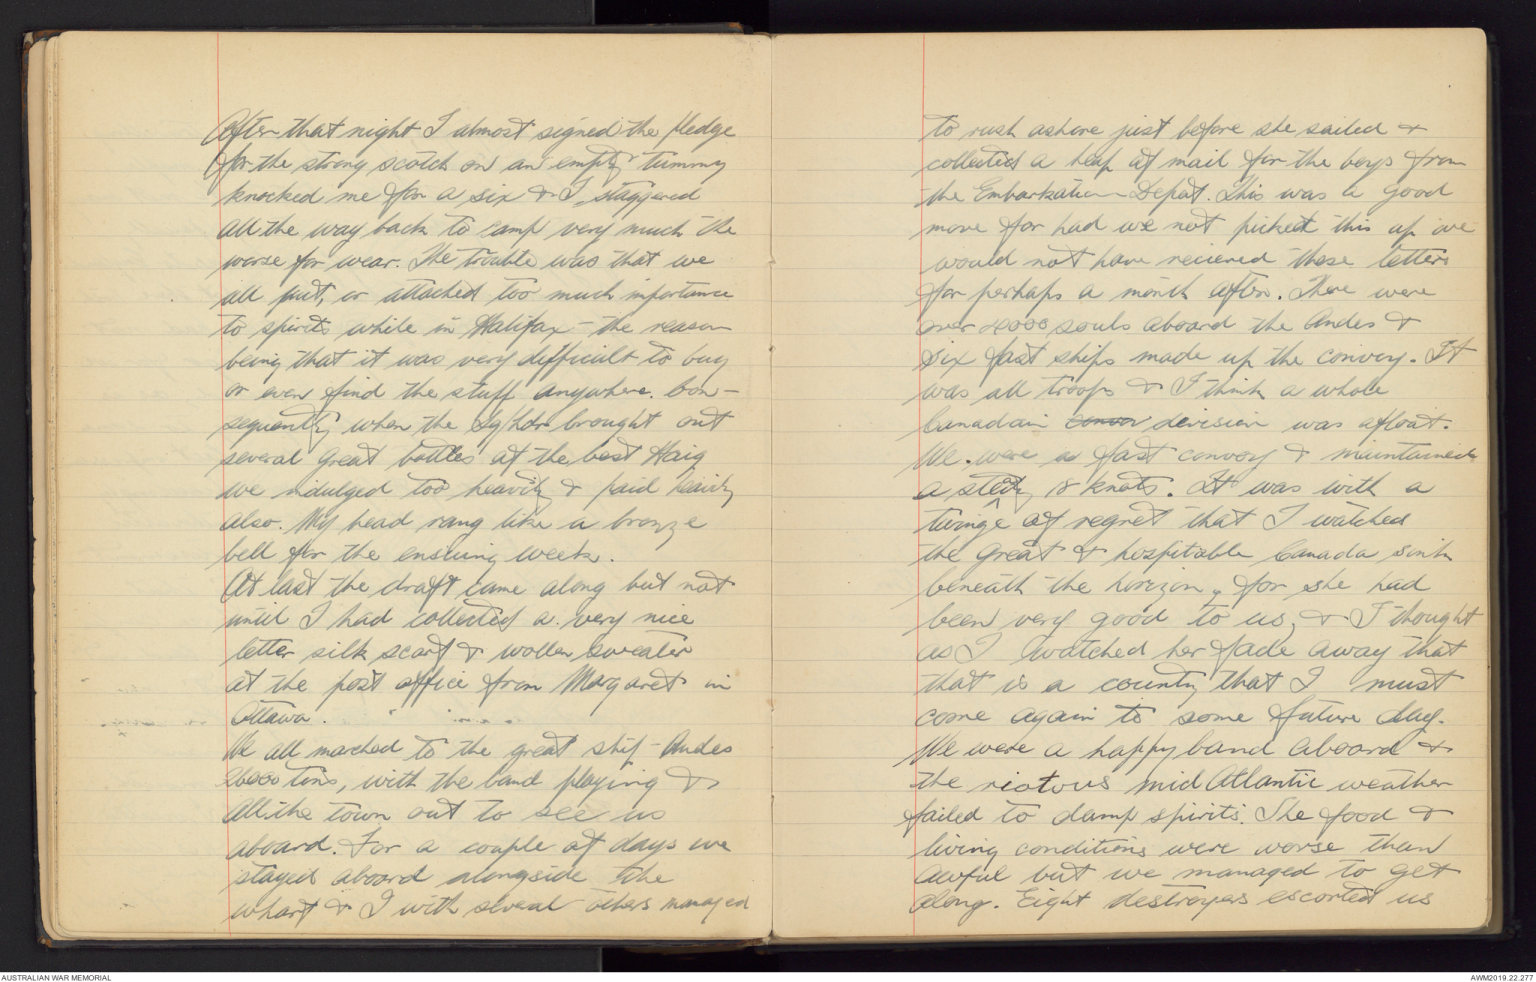 After that night I almost signed the pledge
for the strong scotch on an empty tummy
knocked me for a six & I staggered
all the way back to camp very much the
worse for wear. The trouble was that we
all put, or attached too much importance
to spirits while in Halifax - the reason
being that it was very difficult to buy
or even find the stuff anywhere. Con-
sequently when the brought out
several great bottles of the best Haig
we indulged too heavily & paid heavily
also. My head rang like a bronze
bell for the ensuing week.
At last the draft came along but not
until I had collected a very nice
letter silk scarf & wollen sweater
at the post office from Margaret in
Ottawa.
We all marched to the great ship - Andes
26000 tons, with the band playing &
all the town out to see us
aboard. For a couple of days we
stayed aboard alongside the
wharf & I with several others managed
to rush ashore just before she sailed &
collected a heap of mail for the boys from
the Embarkation Depot. This was a good
move for had we not picked this up we
would not have recieved these letters
for perhaps a month after. There were
over 4000 souls aboard the Andes &
six fast ships made up the convoy. It
was all troops & I think a whole
Canadain division was afloat.
We were a fast convoy & maintained
a steady 18 knots. It was with a
twinge of regret that I watched
the great & hospitable Canada sink
beneath the horizon, for she had
been very good to us, & I thought
as I watched her fade away that
that is a country that I must
come again to some future day.
We were a happy band aboard &
the riotous mid Atlantic weather
failed to damp spirits. The food &
living conditions were worse than
awful but we managed to get
along. Eight destroyers escorted us
AUSTRALIAN WAR MEMORIAL
AWM2019.22.277